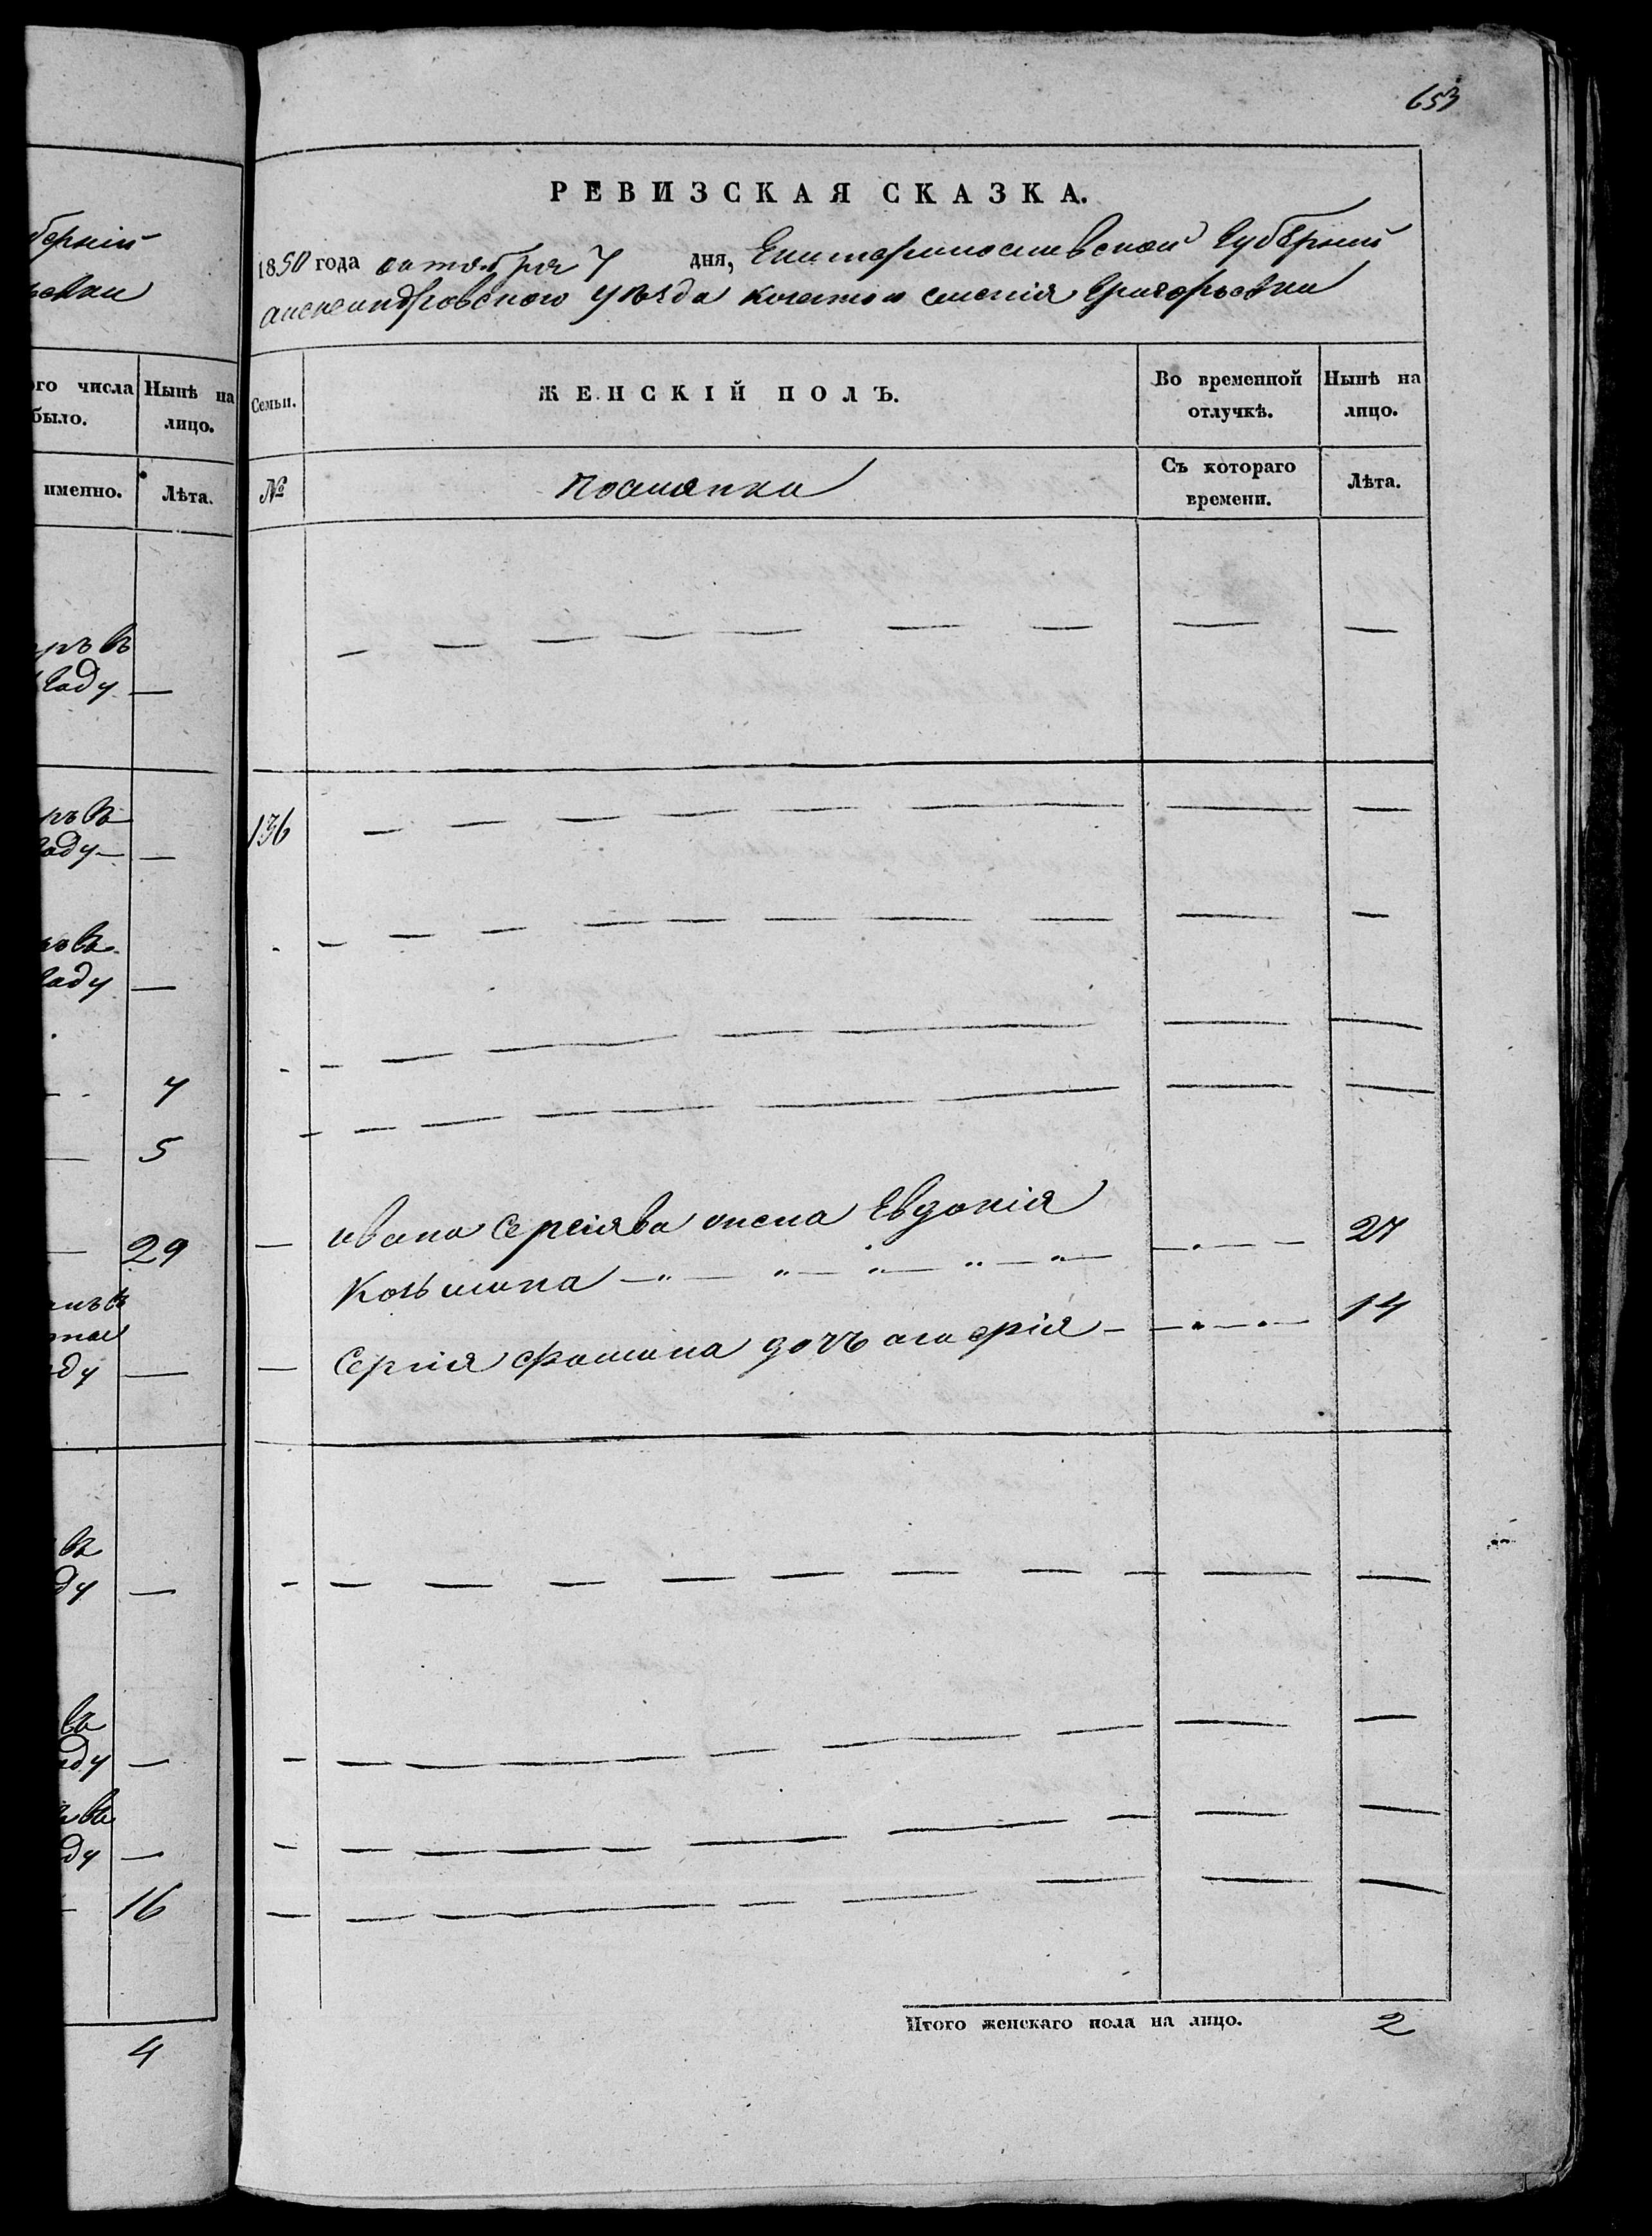 653
РЕВИЗСКАЯ СКАЗКА.
1850 года октября 7 дня, Екатеринославской Губерний
александровского уезда казенного селенія Григорьевки
Семьи.
ЖЕНСКІЙ ПОЛЪ.
Во временной отлучкѣ.
Нынѣ на лицо.
№
поселянки
Съ котораго времени.
Лѣта.
— — — — — — — — —
136 — — — — — — — —
ивана Сергіява жена Евдокія
Козьмина — „ — „ — „ — „ — „ — 27
Сергія Фомина дочь 14
Итого женскаго пола на лицо. 2
бернiи
ьевки
ого числа было.
Нынѣ на лицо.
именно.
Лѣта.
ръ въ
году —
ръ въ
году — —
ръ въ
году —
7
5
29
ду —
въ
ду —
въ
оду —
въ
ду —
16
4